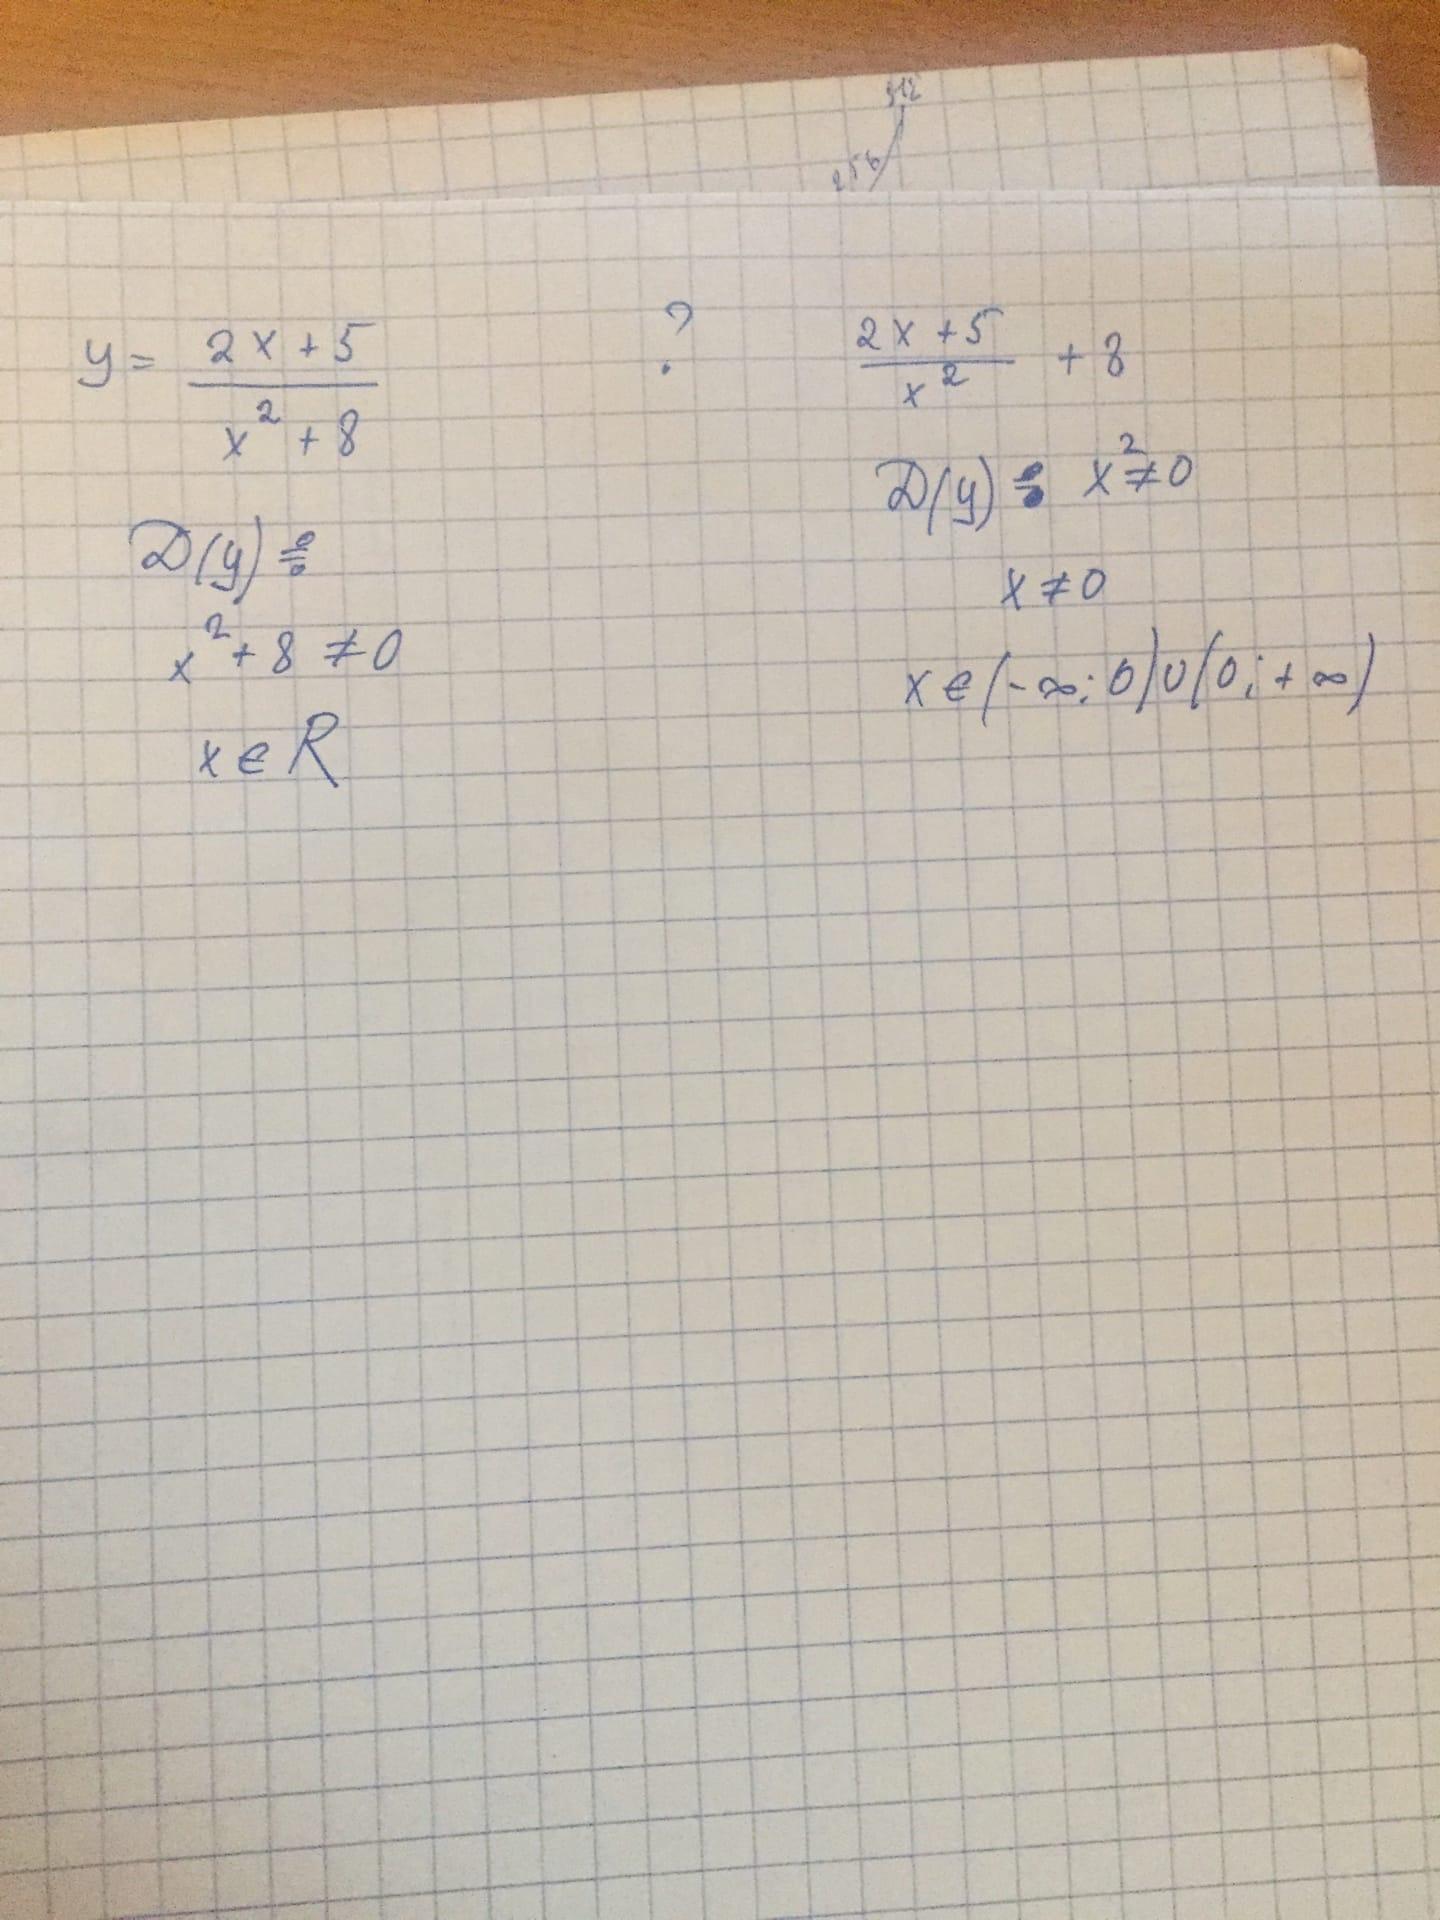 512
256
y = (2x + 5) / (x² + 8)
D(y):
x² + 8 ≠ 0
x ∈ R
?
(2x + 5) / x² + 8
D(y): x² ≠ 0
x ≠ 0
x ∈ (-∞; 0) ∪ (0; +∞)